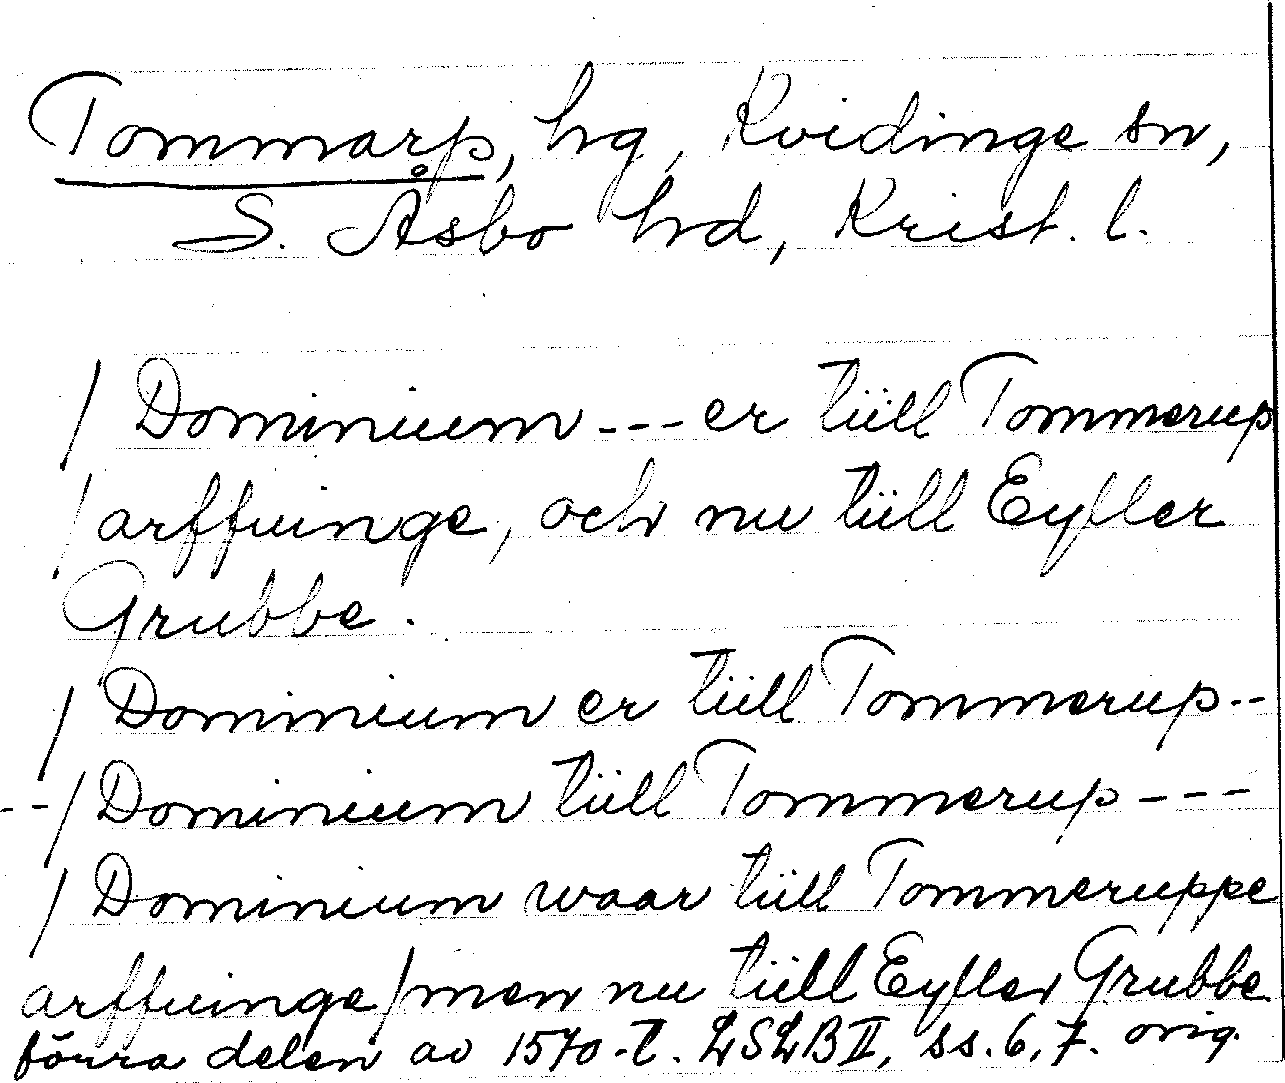 Tommarp, hg, Kvidinge sn,
S. Åsbo hd, Krist. l.
/ Dominium --- er tüll Tommerup
/ arffuinge, och nu tüll Eyller
Grubbe.
/ Dominium er tüll Tommerup --
--/ Dominium tüll Tommerup ---
/ Dominium waar tüll Tommeruppe
arffuinge / men nu tüll Eyller Grubbe
förra delen av 1570-t. LSLB II, ss. 6, 7. orig.